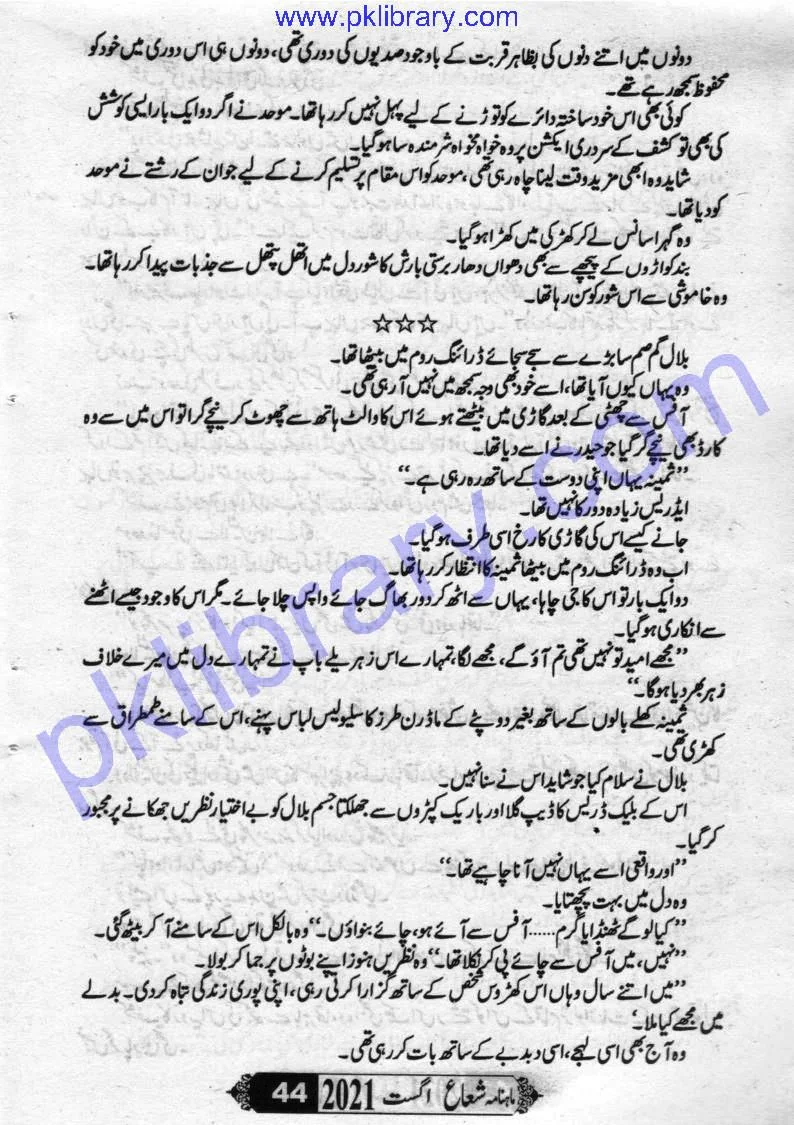 www.pklibrary.com
دونوں میں اتنے دنوں کی بظاہر قربت کے باوجود صدیوں کی دوری تھی، دونوں ہی اس دوری میں خود کو
محفوظ سمجھ رہے تھے۔
کوئی بھی اس خود ساختہ دائرے کو توڑنے کے لیے پہل نہیں کر رہا تھا۔ موحد نے اگر دو ایک بار ایسی کوشش
کی بھی تو کشف کے سرد ری ایکشن پر وہ خواہ مخواہ شرمندہ سا ہو گیا۔
شاید وہ ابھی مزید وقت لینا چاہ رہی تھی، موحد کو اس مقام پر تسلیم کرنے کے لیے جو ان کے رشتے نے موحد
کو دیا تھا۔
وہ گہرا سانس لے کر کھڑکی میں کھڑا ہو گیا۔
بند کواڑوں کے پیچھے سے بھی دھواں دھار برستی بارش کا شور دل میں اتھل پتھل سے جذبات پیدا کر رہا تھا۔
وہ خاموشی سے اس شور کو سن رہا تھا۔
☆☆☆
بلال گم صم سا بڑے سے سجے سجائے ڈرائنگ روم میں بیٹھا تھا۔
وہ یہاں کیوں آیا تھا، اسے خود بھی وجہ سمجھ میں نہیں آ رہی تھی۔
آفس سے چھٹی کے بعد گاڑی میں بیٹھتے ہوئے اس کا والٹ ہاتھ سے چھوٹ کر نیچے گرا تو اس میں سے وہ
کارڈ بھی نیچے گر گیا جو حیدر نے اسے دیا تھا۔
”ثمینہ یہاں اپنی دوست کے ساتھ رہ رہی ہے۔“
ایڈریس زیادہ دور کا نہیں تھا۔
جانے کیسے اس کی گاڑی کا رخ اسی طرف ہو گیا۔
اب وہ ڈرائنگ روم میں بیٹھا ثمینہ کا انتظار کر رہا تھا۔
دو ایک بار تو اس کا جی چاہا، یہاں سے اٹھ کر دور بھاگ جائے واپس چلا جائے۔ مگر اس کا وجود جیسے اٹھنے
سے انکاری ہو گیا۔
”مجھے امید تو نہیں تھی تم آؤ گے، مجھے لگا، تمہارے اس زہریلے باپ نے تمہارے دل میں میرے خلاف
زہر بھر دیا ہوگا۔“
ثمینہ کھلے بالوں کے ساتھ بغیر دوپٹے کے ماڈرن طرز کا سلیولیس لباس پہنے، اس کے سامنے طمطراق سے
کھڑی تھی۔
بلال نے سلام کیا جو شاید اس نے سنا نہیں۔
اس کے بلیک ڈریس کا ڈیپ گلا اور باریک کپڑوں سے جھلکتا جسم بلال کو بے اختیار نظریں جھکانے پر مجبور
کر گیا۔
”اور واقعی اسے یہاں نہیں آنا چاہیے تھا“۔
وہ دل میں بہت پچھتایا۔
”کیا لو گے ٹھنڈا یا گرم...... آفس سے آئے ہو، چائے بنواؤں۔“ وہ بالکل اس کے سامنے آ کر بیٹھ گئی۔
”نہیں، میں آفس سے چائے پی کر نکلا تھا۔“ وہ نظریں ہنوز اپنے بوٹوں پر جما کر بولا۔
”میں اتنے سال وہاں اس کھڑوس شخص کے ساتھ گزارا کرتی رہی، اپنی پوری زندگی تباہ کر دی۔ بدلے
میں مجھے کیا ملا۔‘
وہ آج بھی اسی لہجے، اسی دبدبے کے ساتھ بات کر رہی تھی۔
ماہنامہ شعاع اگست 2021 44
pklibrary.com